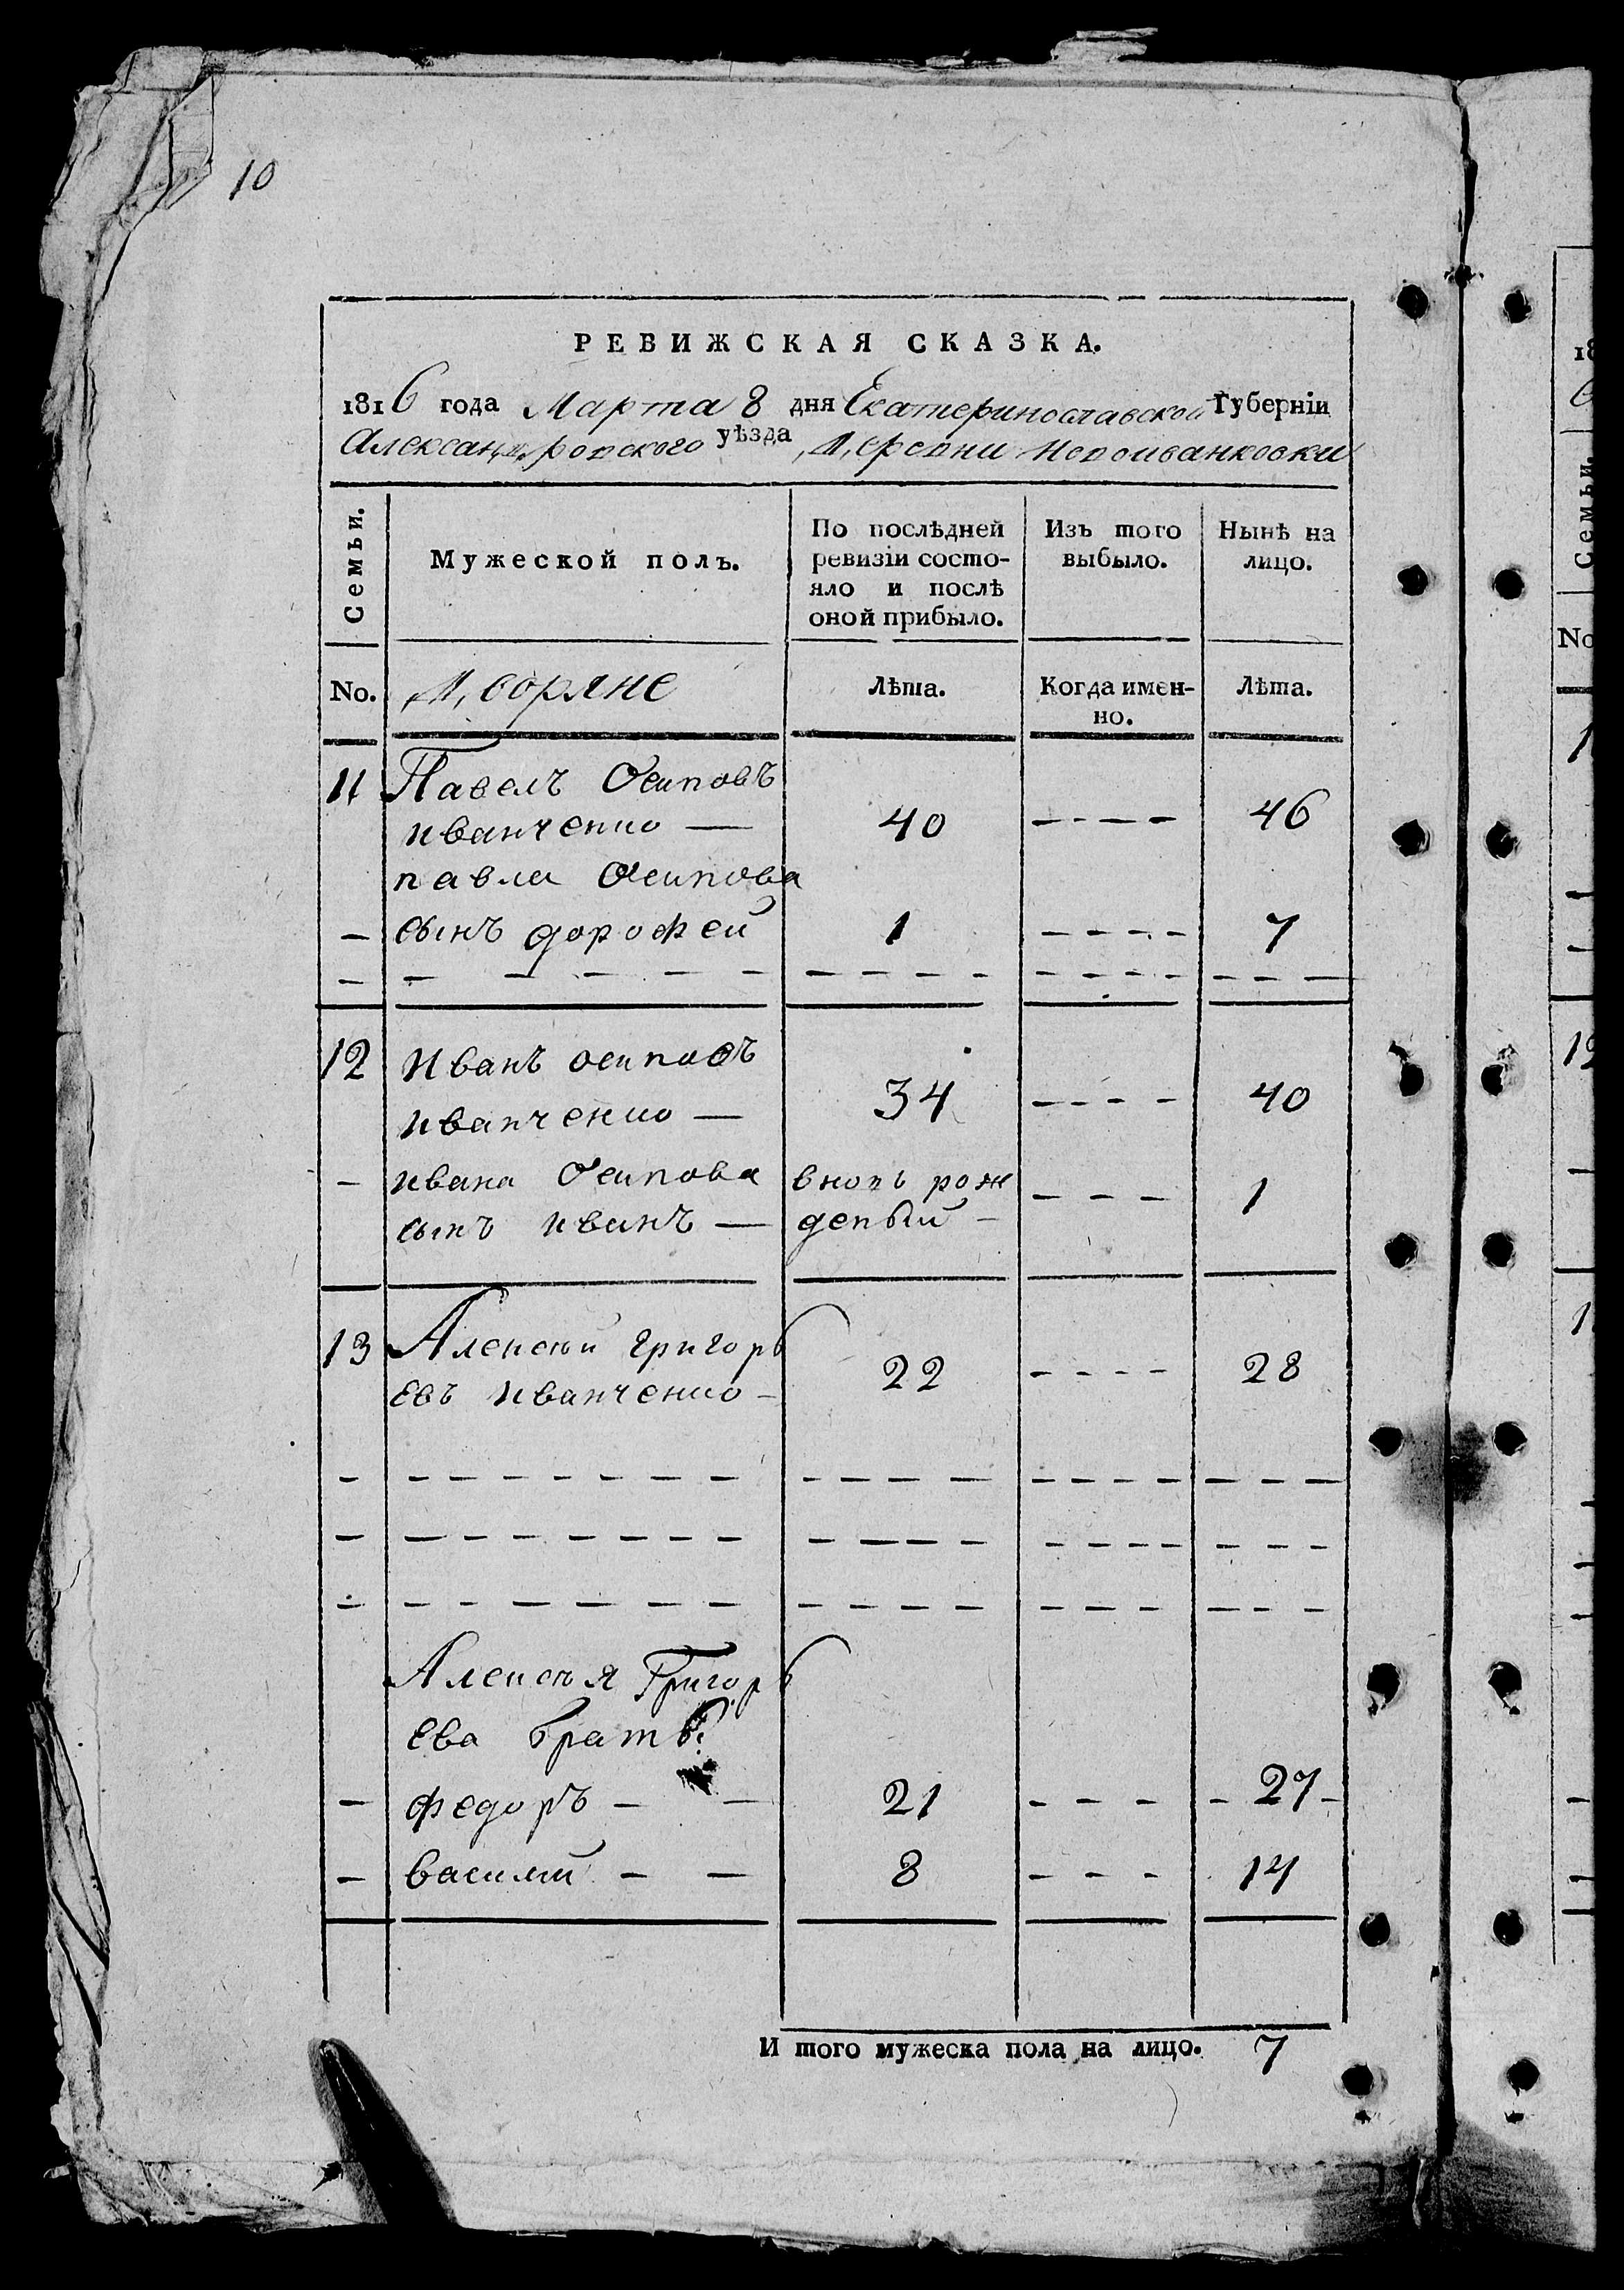 10
РЕВИЖСКАЯ СКАЗКА.
1816 года Марта 8 дня Екатеринославской Губерніи
Александровского уѣзда, Деревни Новоиванковки
Семьи.
Мужеской полъ.
По послѣдней ревизіи состо-
яло и послѣ
оной прибыло.
Изъ того
выбыло.
Нынѣ на
лицо.
No. Дворяне Лѣта. Когда имен-
но. Лѣта.
11 Павелъ Осиповъ
Иванченко — 40 - - - - 46
павла Осипова
— сынъ дорофей 1 - - - - 7
12 Иванъ осиповъ
Иванченко — 34 - - - - 40
- ивана Осипова вновь рож
сынъ иванъ — деный - - - - 1
13 Алексей григорь
евъ Иванченко - 22 - - - - 28
Алексея Григорь
ева братья
— федоръ - — 21 - - - - 27 -
— василий - — 8 - - - 14
И того мужеска пола на лицо. 7
18
Семьи.
No
12